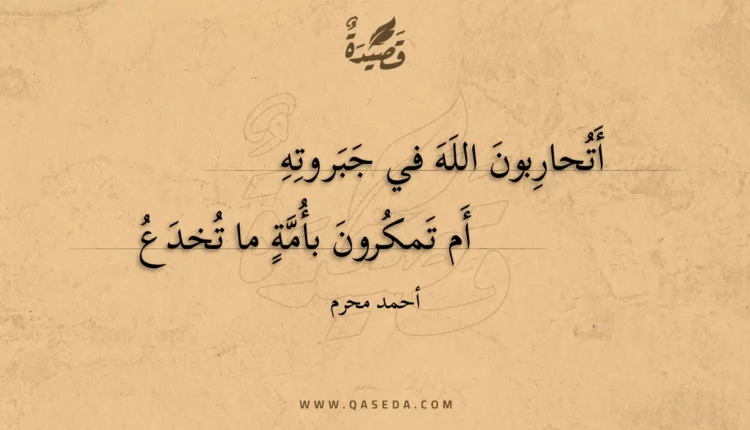 قَصِيْدَةٌ
أَتُحارِبونَ اللَهَ في جَبَروتِهِ
أَم تَمكُرونَ بأُمَّةٍ ما تُخدَعُ
أحمد محرم
WWW.QASEDA.COM